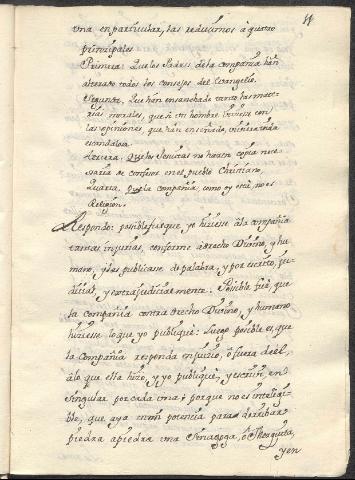 11
una en particular, las reducimos à quatro
principales
Primera: Que los Padres de la Compañia han
alterado todos los consejos del Evangelio.
Segunda, Que han ensanchado tanto las mate-
rias morales, que si un hombre viviesse con
las opiniones, que han enseñado, viviera vida
escandalosa
tercera. Que los Jesuitas no hacen copia nece-
saria de confesores en el pueblo Christiano,
Quarta, que la Compañia, como oy està, no es
Religion.
Respondo: posible fue que, yo hiziesse à la Compañia
tantas injurias, conforme a derecho Divino, y hu-
mano, y las publicase de palabra, y por escrito, ju-
dicial, y extrajudicialmente. Posible fue, que
la Compañia contra drecho Divino, y humano
hiziesse lo que yo publiquè: Luego posible es, que
la Compañia responda en juizio, ò fuera de èl,
à lo que ella hizo, y yo publiquè, y escrivi en
singular por cada una: porque no es inteligi-
ble, que aya en mi potencia para derribar
piedra a piedra una Synagoga, ò Mezquita,
y en